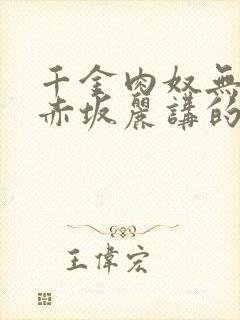 千金肉奴無
赤坂麗講的
王偉宏